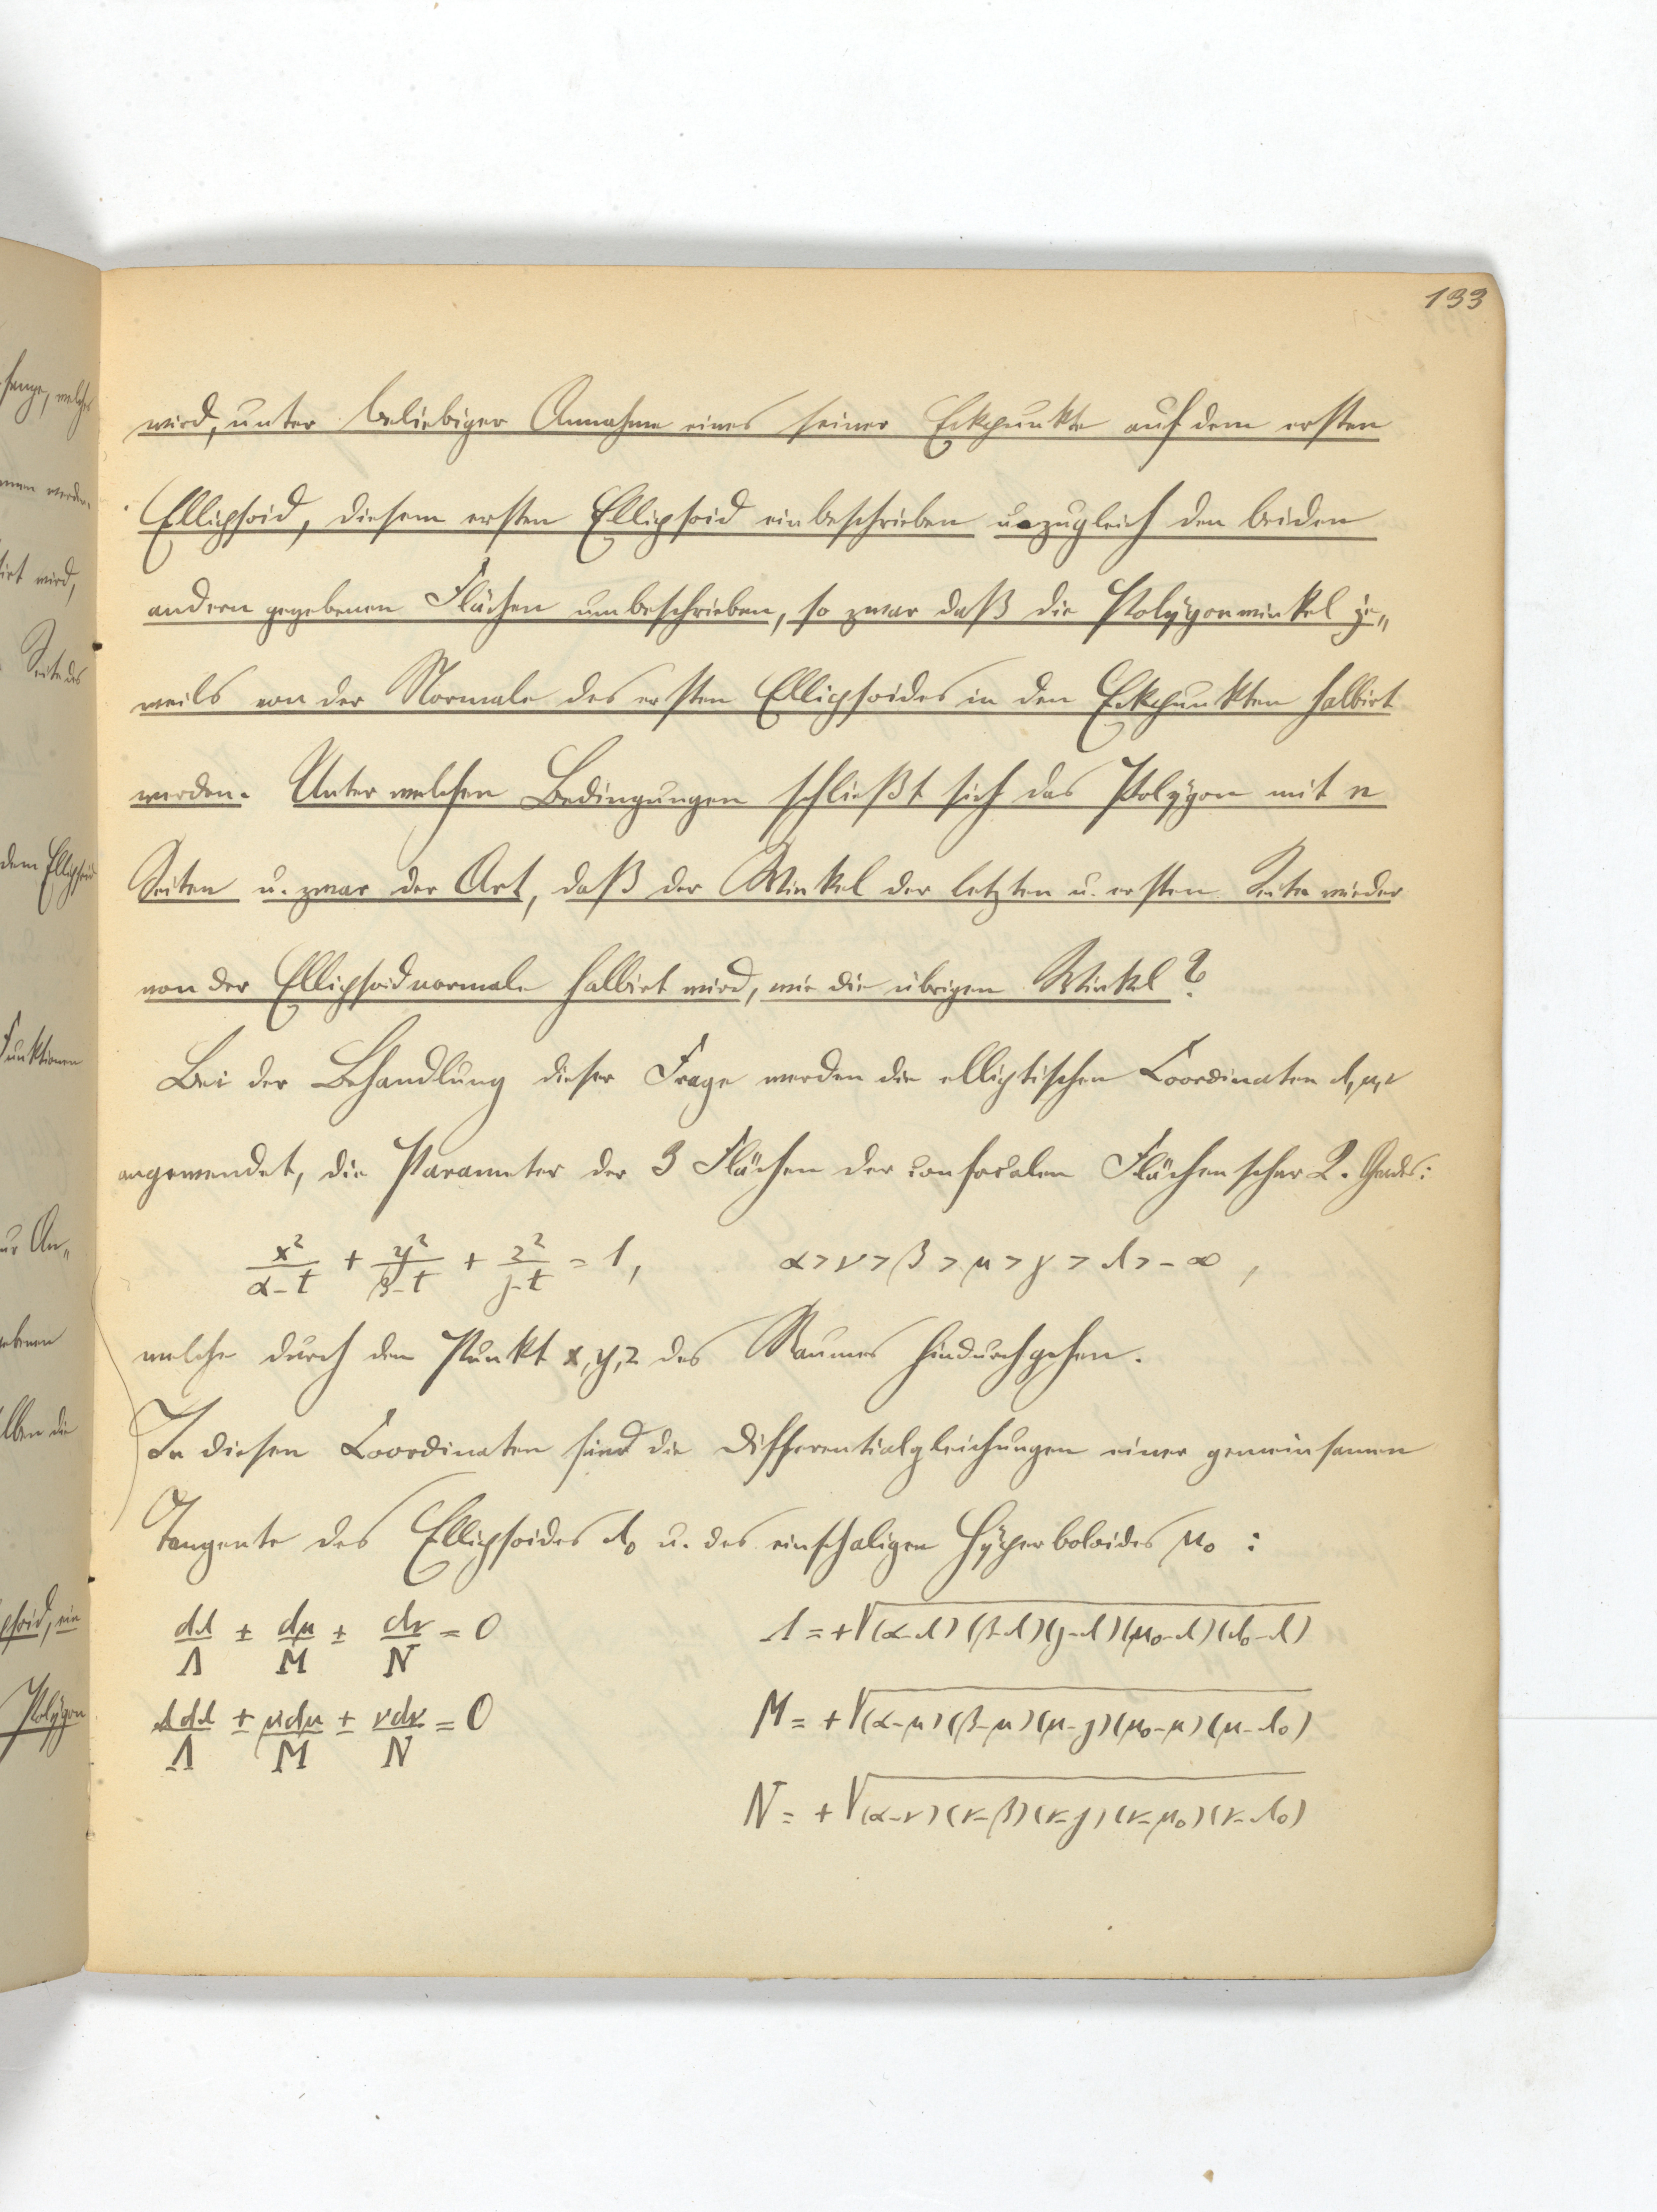 133
wird, unter beliebiger Annahme eines seiner Eckpunkte auf dem ersten
Ellipsoid, diesem ersten Ellipsoid einbeschrieben u. zugleich den beiden
andern gegebenen Flächen umbeschrieben, so zwar daß die Polygonwinkel je„
weils von der Normale des ersten Ellipsoides in den Eckpunkten halbirt
werden. Unter welchen Bedingungen schließt sich das Polygon mit n
Seiten u. zwar der Art, daß der Winkel der letzten u. ersten Seite wieder
von der Ellipsoidnormale halbirt wird, wie die übrigen Winkel?
Bei der Behandlung dieser Frage werden die elliptischen Coordinaten λ, μ, ν
angewendet, die Parameter der 3 Flächen der confocalen Flächenschar 2. Grades:
x²/(α-t) + y²/(β-t) + z²/(γ-t) = 1, α > ν > β > μ > γ > λ > -∞,
welche durch den Punkt x, y, z des Raumes hindurchgehen.
In diesen Coordinaten sind die Differentialgleichungen einer gemeinsamen
Tangente des Ellipsoides λ₀ u. des einschaligen Hyperboloides μ₀ :
dλ/Λ ± dμ/M ± dν/N = 0 Λ = +√(α-λ)(β-λ)(γ-λ)(μ₀-λ)(λ₀-λ)
λdλ/Λ ± μdμ/M ± νdν/N = 0 M = +√(α-μ)(β-μ)(μ-γ)(μ₀-μ)(μ-λ₀)
N = +√(α-ν)(ν-β)(ν-γ)(ν-μ₀)(ν-λ₀)